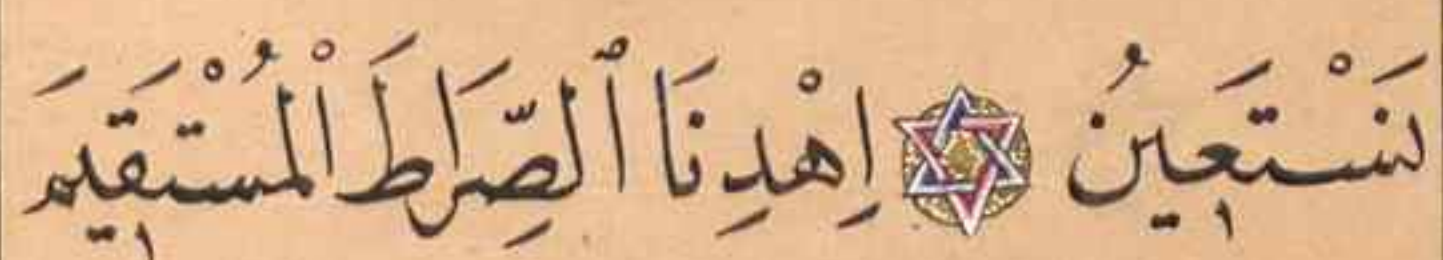 نَسْتَعِينُ اِهْدِنَا ٱلصِّرَاطَ الْمُسْتَقِيمَ